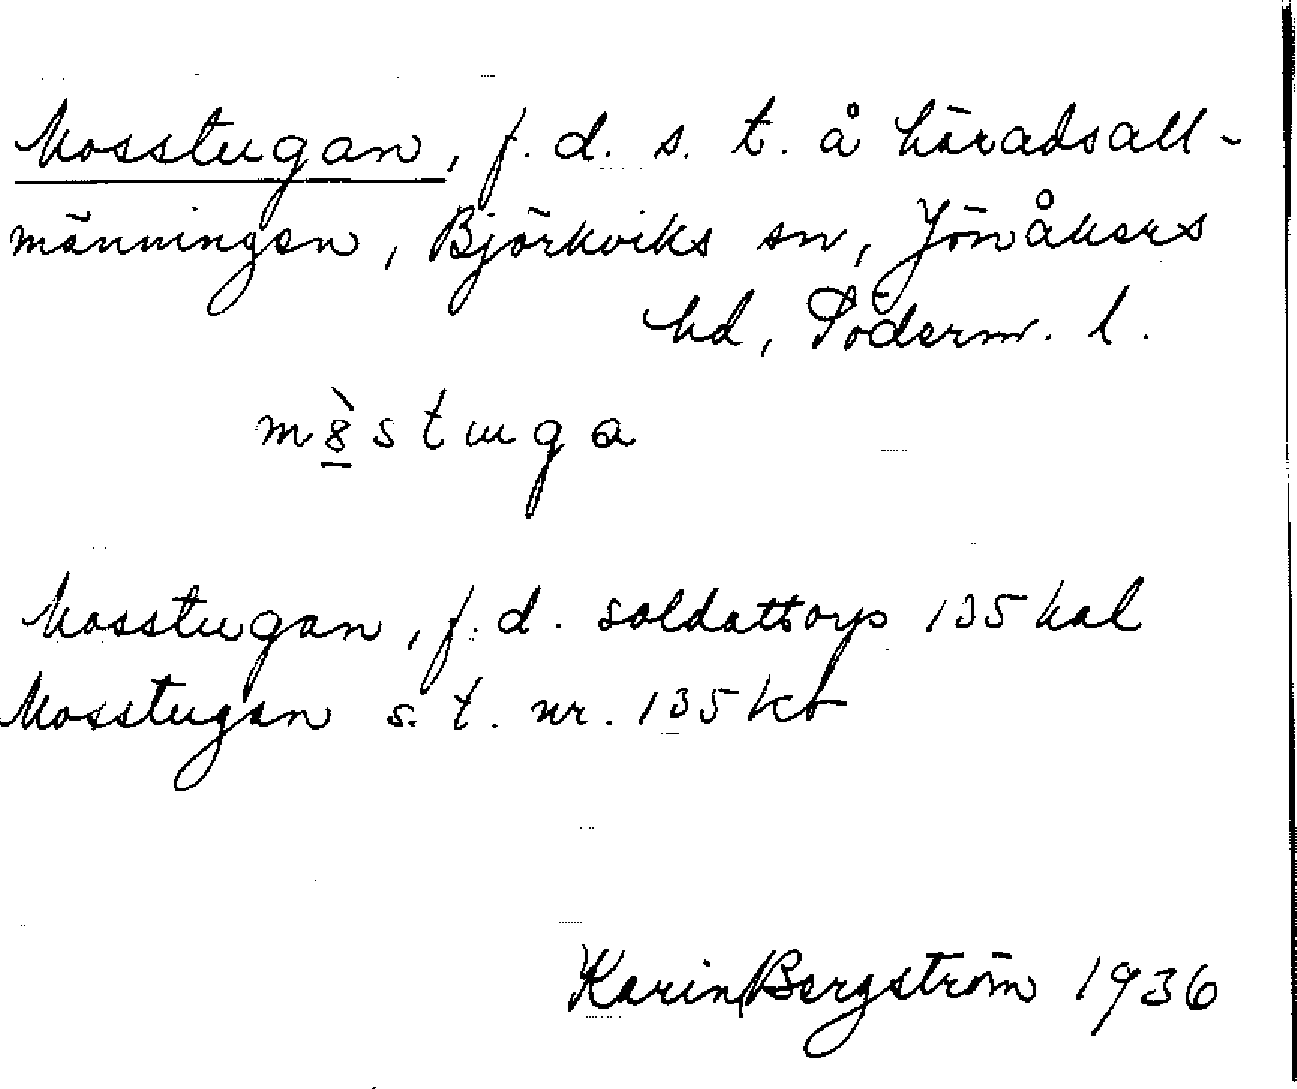 Mosstugan, f. d. s. t. å häradsall-
männingen, Björkviks sn, Jönåkers
hd, Söderm. l.
m8̀stɯga
Mosstugan, f. d. soldattorp 135 hal
Mosstugan s. t. nr. 135 kb
Karin Bergström 1936